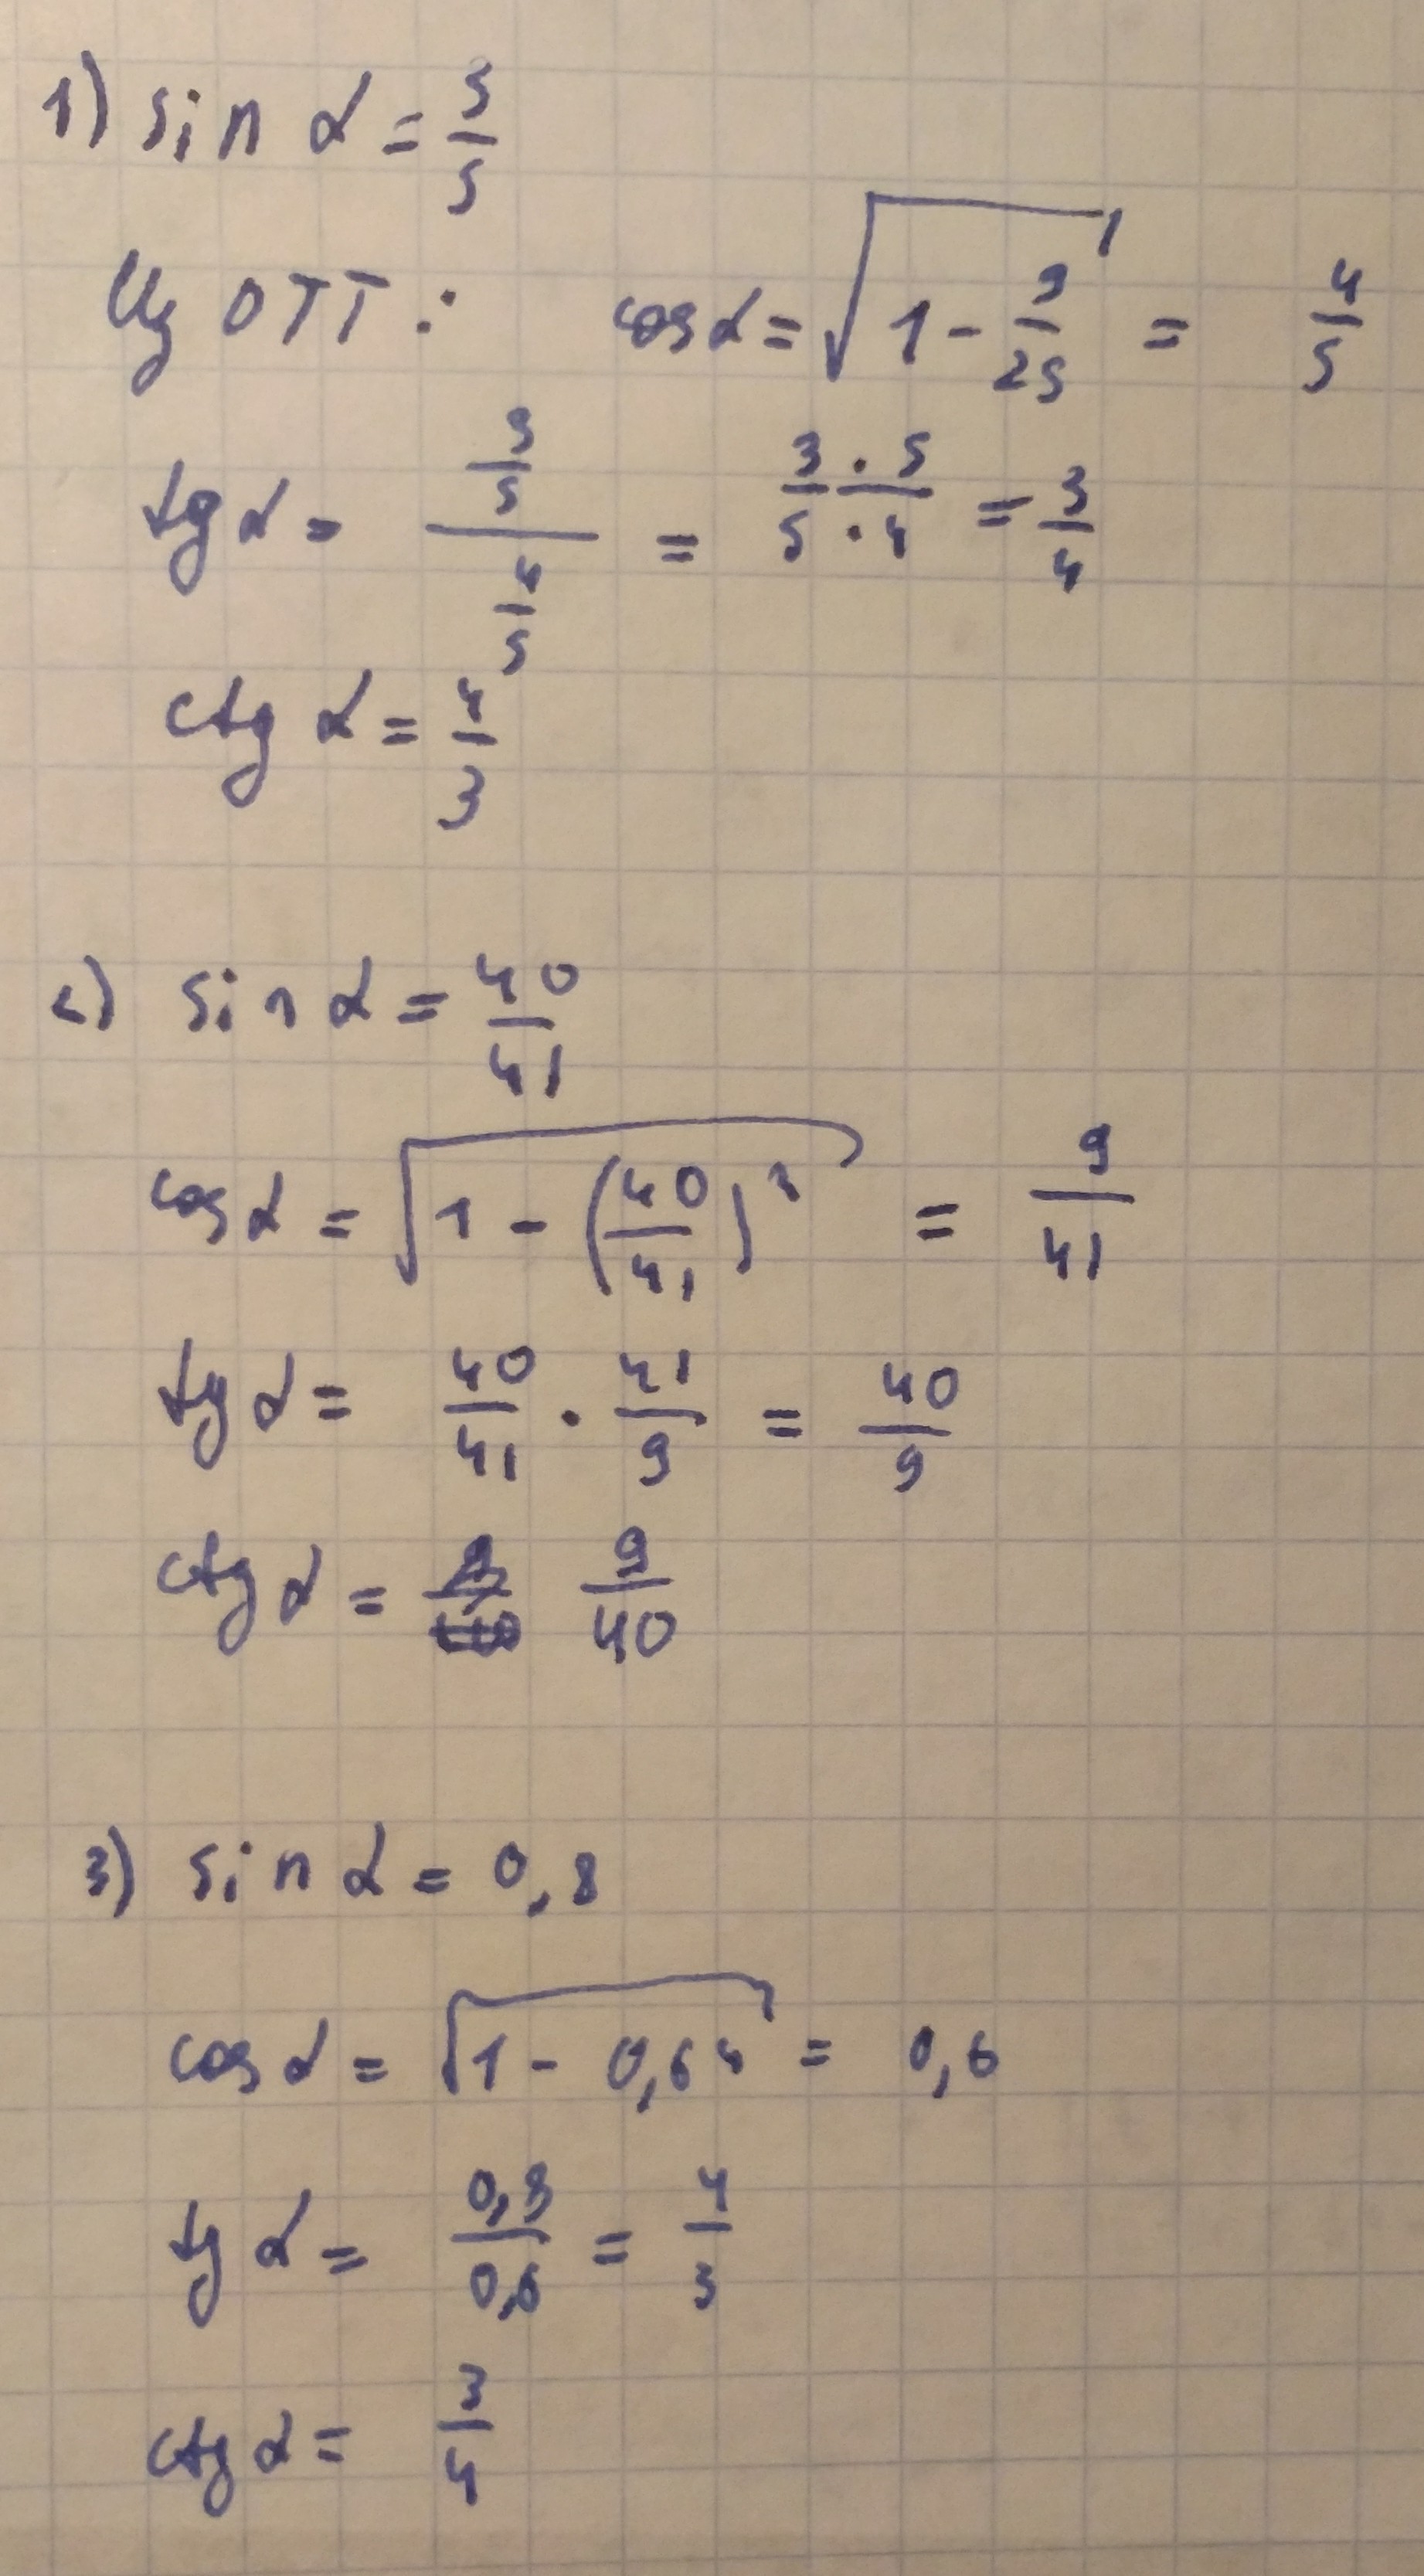 1) sin α = 3/5
Из ОТТ: cos α = √(1 - 9/25) = 4/5
tg α = (3/5)/(4/5) = (3 · 5)/(5 · 4) = 3/4
ctg α = 4/3
2) sin α = 40/41
cos α = √(1 - (40/41)²) = 9/41
tg α = 40/41 · 41/9 = 40/9
ctg α = 9/40
3) sin α = 0,8
cos α = √(1 - 0,64) = 0,6
tg α = 0,8/0,6 = 4/3
ctg α = 3/4